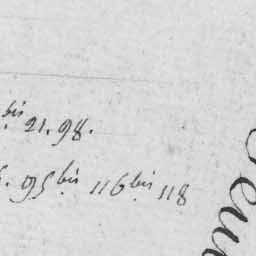 bis 21. 98.
95 bis 116 bis 118